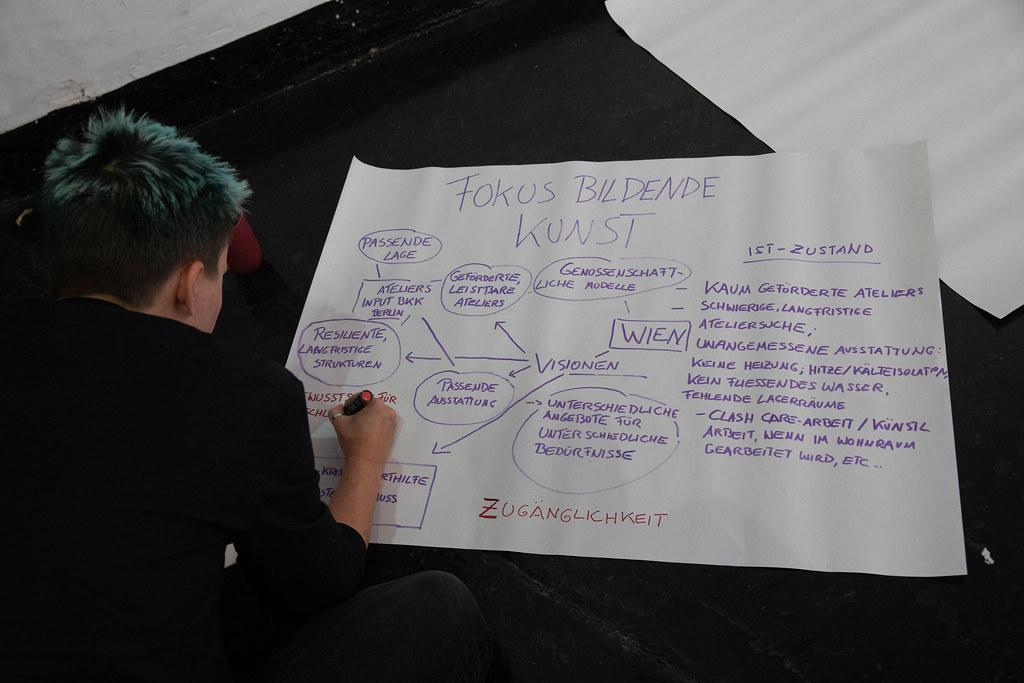 FOKUS BILDENDE
KUNST
PASSENDE
LAGE
ATELIERS
INPUT BKK
BERLIN
GEFÖRDERTE,
LEISTBARE
ATELIERS
GENOSSENSCHAFT-
LICHE MODELLE
WIEN
RESILIENTE,
LANGFRISTIGE
STRUKTUREN
PASSENDE
AUSSTATTUNG
VISIONEN
→ UNTERSCHIEDLICHE
ANGEBOTE FÜR
UNTERSCHIEDLICHE
BEDÜRFNISSE
ZUGÄNGLICHKEIT
IST-ZUSTAND
- KAUM GEFÖRDERTE ATELIERS
- SCHWIERIGE, LANGFRISTIGE
ATELIERSUCHE,;
- UNANGEMESSENE AUSSTATTUNG:
KEINE HEIZUNG; HITZE/KÄLTEISOLATION,
KEIN FLIESSENDES WASSER,
FEHLENDE LAGERRÄUME
- CLASH CARE-ARBEIT / KÜNSTL
ARBEIT, WENN IM WOHNRAUM
GEARBEITET WIRD, ETC...